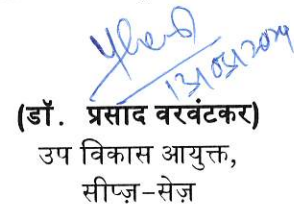 13/03/2024
(डॉ. प्रसाद वरवंटकर)
उप विकास आयुक्त,
सीप्ज़-सेज़